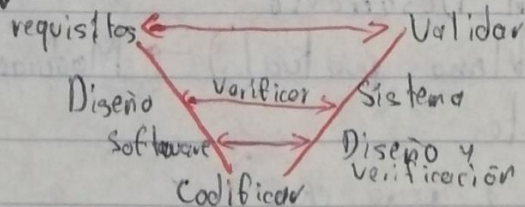 requisitos Validar
Diseño verificar Sistema
Software Diseño y
verificación
Codificar